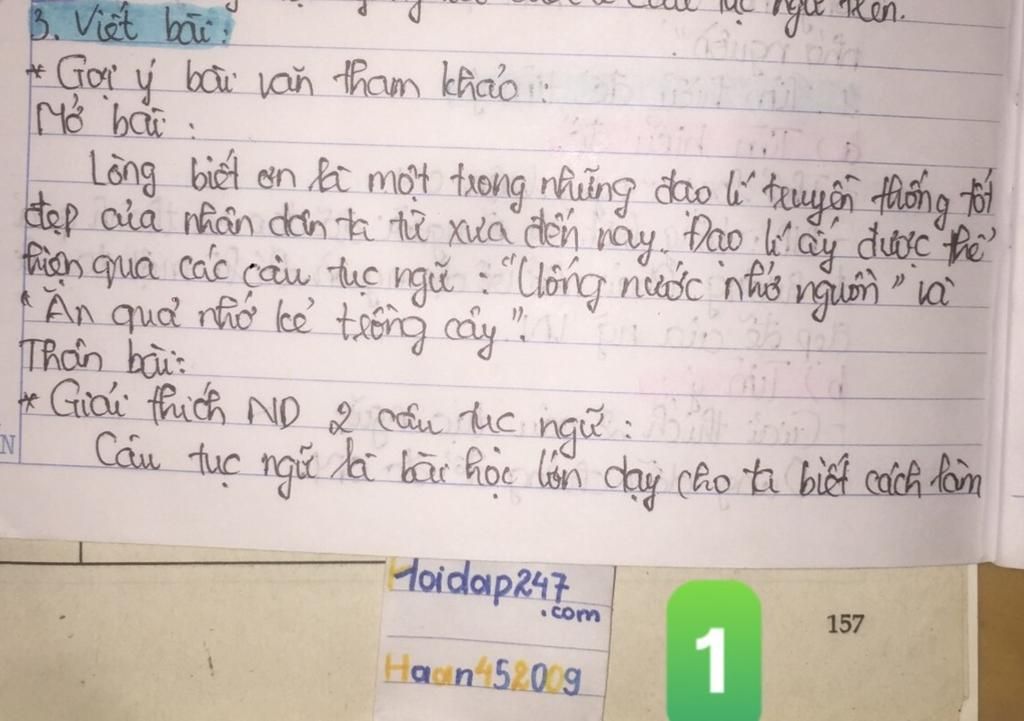 câu tục ngữ trên.
3. Viết bài:
* Gợi ý bài văn tham khảo:
Mở bài:
Lòng biết ơn là một trong những đạo lí truyền thống tốt
đẹp của nhân dân ta từ xưa đến nay. Đạo lí ấy được thể
hiện qua các câu tục ngữ: "Uống nước nhớ nguồn" và
"Ăn quả nhớ kẻ trồng cây".
Thân bài:
* Giải thích ND 2 câu tục ngữ:
N
Câu tục ngữ là bài học lớn dạy cho ta biết cách làm
Hoidap247
.com
157
1
Haan452009